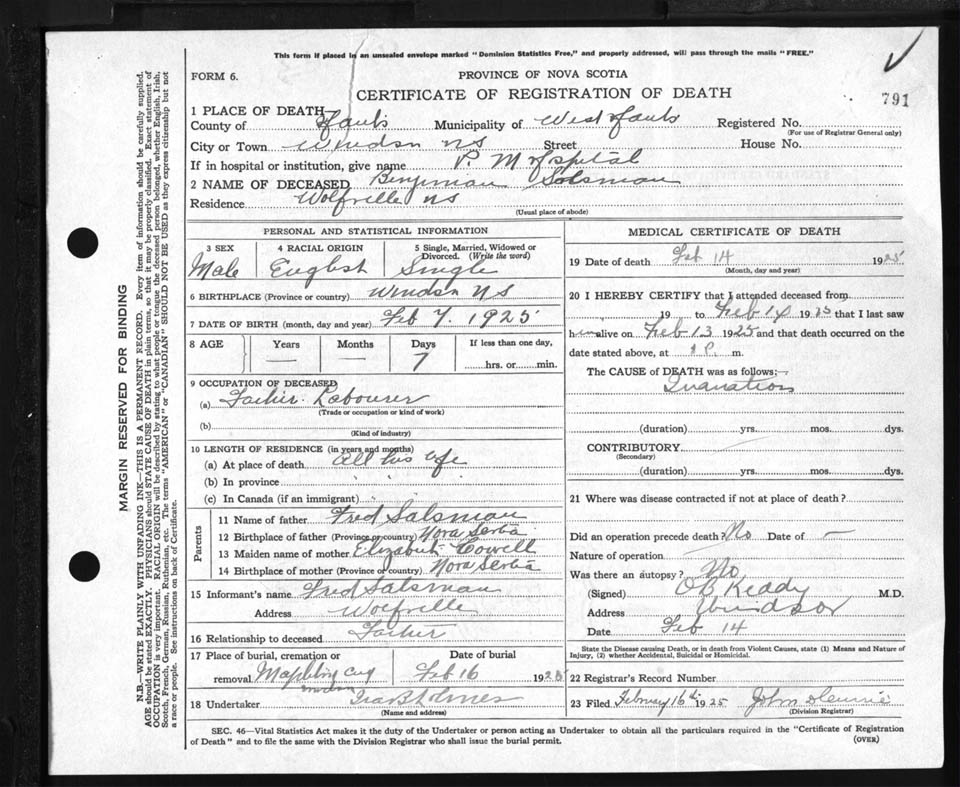 This form if placed in an unsealed envelope marked "Dominion Statistics Free," and properly addressed, will pass through the mails "FREE."
FORM 6.
PROVINCE OF NOVA SCOTIA
CERTIFICATE OF REGISTRATION OF DEATH
791
1 PLACE OF DEATH
County of Hants Municipality of West Hants Registered No.
(For use of Registrar General only)
City or Town Windsor NS Street House No.
If in hospital or institution, give name P. M Hospital
2 NAME OF DECEASED Benjiman Salsman
Residence Wolfville NS
(Usual place of abode)
PERSONAL AND STATISTICAL INFORMATION
3 SEX 4 RACIAL ORIGIN 5 Single, Married, Widowed or Divorced. (Write the word)
Male English Single
6 BIRTHPLACE (Province or country) Windsor NS
7 DATE OF BIRTH (month, day and year) Feb 7. 1925
8 AGE Years Months Days If less than one day,
7 hrs. or min.
9 OCCUPATION OF DECEASED
(a) Father. Labourer
(Trade or occupation or kind of work)
(b)
(Kind of industry)
10 LENGTH OF RESIDENCE (in years and months)
(a) At place of death all his life
(b) In province " " "
(c) In Canada (if an immigrant)
Parents
11 Name of father Fred Salsman
12 Birthplace of father (Province or country) Nova Scotia
13 Maiden name of mother Elizabeth Cowell
14 Birthplace of mother (Province or country) Nova Scotia
15 Informant's name Fred Salsman
Address Wolfville
16 Relationship to deceased Father
17 Place of burial, cremation or removal Date of burial
Windsor Feb 16 1925
18 Undertaker Ira B Holmes
(Name and address)
MEDICAL CERTIFICATE OF DEATH
19 Date of death Feb 14 1925
(Month, day and year)
20 I HEREBY CERTIFY that I attended deceased from
19 to Feb 14 1925 that I last saw
him alive on Feb 13 1925 and that death occurred on
date stated above, at P. m.
The CAUSE of DEATH was as follows:—
Inanation
(duration) yrs. mos. dys.
CONTRIBUTORY
(Secondary)
(duration) yrs. mos. dys.
21 Where was disease contracted if not at place of death?
Did an operation precede death? No Date of —
Nature of operation
Was there an autopsy? No
(Signed) O B Keddy M.D.
Address Windsor
Date Feb 14
State the Disease causing Death, or in death from Violent Causes, state (1) Means and Nature of Injury, (2) whether Accidental, Suicidal or Homicidal.
22 Registrar's Record Number
23 Filed February 16th 1925 John
(Division Registrar)
SEC. 46—Vital Statistics Act makes it the duty of the Undertaker or person acting as Undertaker to obtain all the particulars required in the "Certificate of Registration
of Death" and to file the same with the Division Registrar who shall issue the burial permit. (OVER)
MARGIN RESERVED FOR BINDING
N.B.—WRITE PLAINLY WITH UNFADING INK—THIS IS A PERMANENT RECORD. Every item of information should be carefully supplied.
AGE should be stated EXACTLY. PHYSICIANS should STATE CAUSE OF DEATH in plain terms, so that it may be properly classified. Exact statement of
OCCUPATION is very important. RACIAL ORIGIN will be described by stating to what people or tongue the deceased person belonged, whether English, Irish,
Scotch, French, German, Russian, Ruthenian, etc. The terms "AMERICAN" or "CANADIAN" SHOULD NOT BE USED as they express citizenship but not
a race or people. See instructions on back of Certificate.